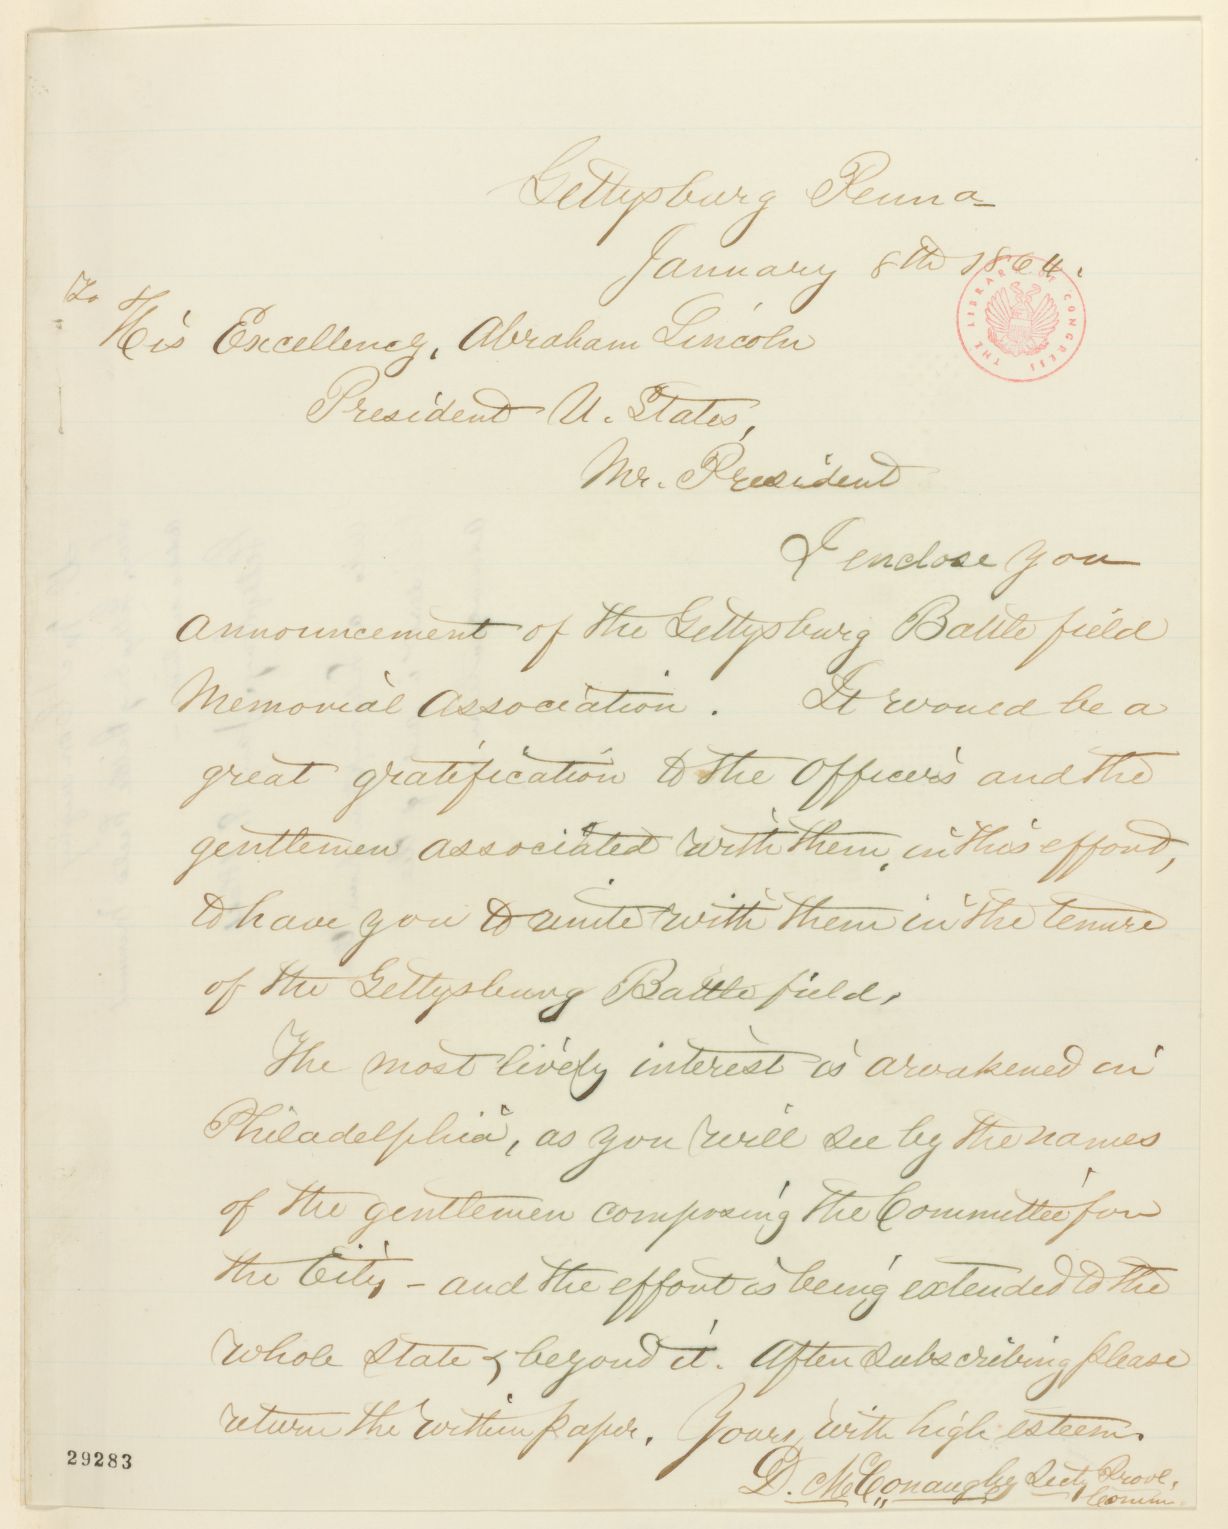 Gettysburg Penna
January 8th 1864.
THE LIBRARY OF CONGRESS
To
His Excellency, Abraham Lincoln
President U. States,
Mr. President
I enclose you
announcement of the Gettysburg Battle field
Memorial Association. It would be a
great gratification to the Officers and the
gentlemen associated with them, in this effort,
to have you to unite with them in the tenure
of the Gettysburg Battle field.
The most lively interest is awakened in
Philadelphia, as you will see by the names
of the gentlemen composing the Committee for
the City, - and the effort is being extended to the
whole State & beyond it. After subscribing please
return the within paper. Yours, with high esteem.
D. McConaughy Secty Provl.
Comm.
29283